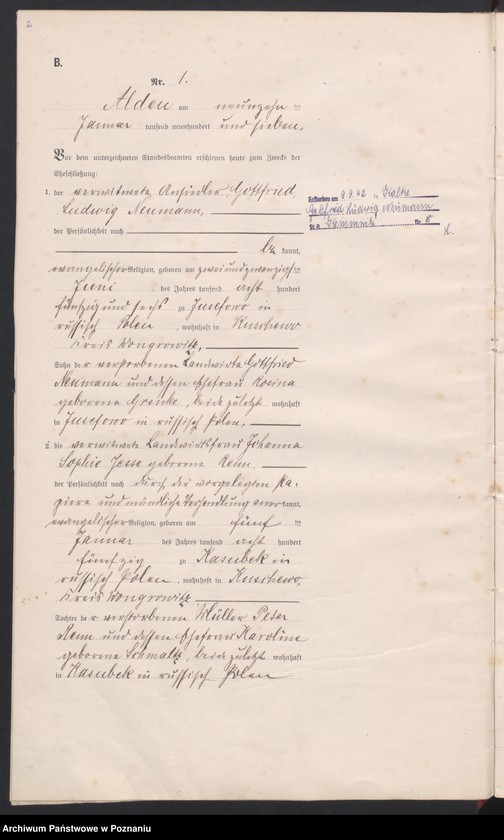 2
B.
Nr. 1.
Alden am neunzehn ten
Januar tausend neunhundert und sieben.
Vor dem unterzeichneten Standesbeamten erschienen heute zum Zwecke der
Eheschließung:
1. der verwitwete Ansiedler Gottfried
Ludwig Neumann,
der Persönlichkeit nach
be kannt,
evangelischer Religion, geboren am zweiundzwanzigsten
Juni des Jahres tausend acht hundert
fünfzig und sechs zu Jusefowo in
russisch Polen, wohnhaft in Kuschewo
Kreis Wongrowitz,
Sohn der verstorbenen Landwirts Gottfried
Neumann und dessen Ehefrau Rosina
geborene, beide zuletzt wohnhaft
in Jusefowo in russisch Polen,
2. die verwitwete Landwirtsfrau Johanna
Sophie Jesse geborene Renn,
der Persönlichkeit nach durch die vorgelegten Pa-
piere und mündliche Verhandlung anerkannt,
evangelischer Religion, geboren am fünf ten
Januar des Jahres tausend acht hundert
fünfzig zu Kasubek in
russisch Polen, wohnhaft in Kuschewo,
Kreis Wongrowitz
Tochter der verstorbenen Müller Peter
Renn und dessen Ehefrau Karoline
geborene Schmaltz, beide zuletzt wohnhaft
in Kasubek in russisch Polen
Gestorben am 9.9.42
Gottfried Ludwig Neumann
St.A. Nr. 5
Archiwum Państwowe w Poznaniu